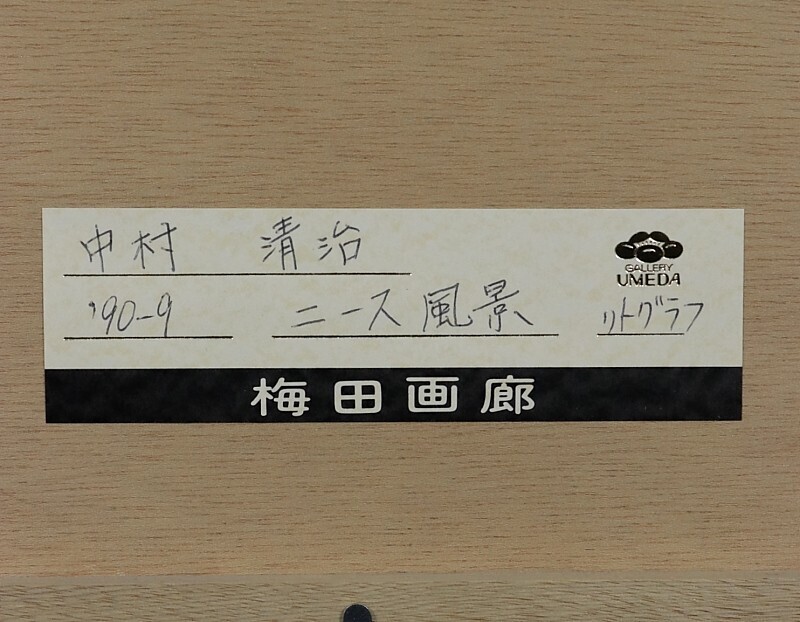 中村 清治
GALLERY
UMEDA
'90-9 ニース風景 リトグラフ
梅田画廊